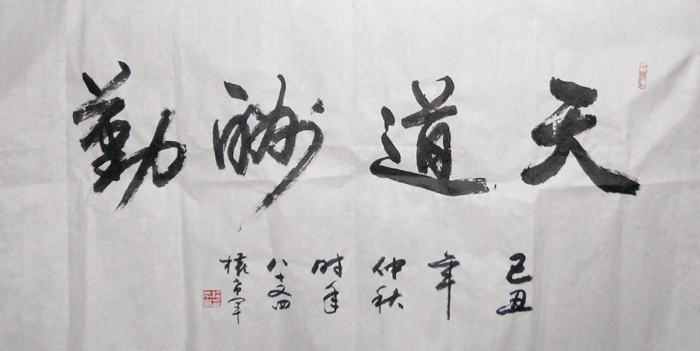 天道酬勤
己丑
年
仲秋
时年
八十又四